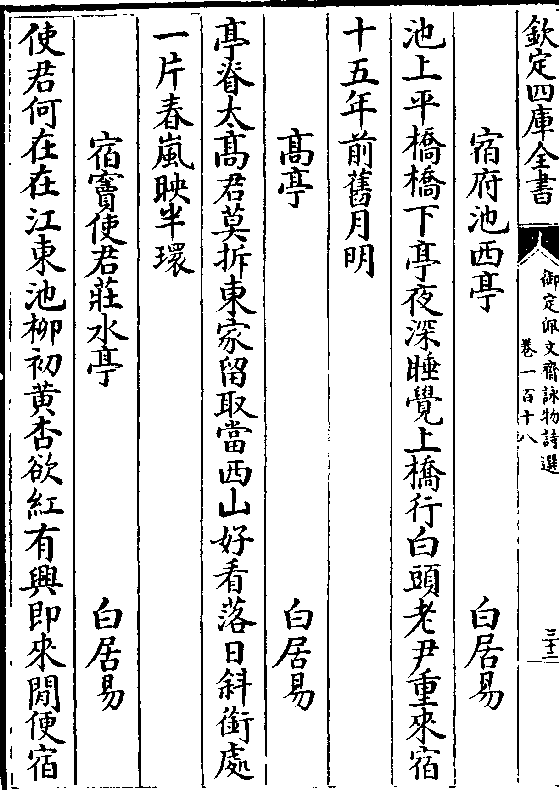 欽定四庫全書
御定佩文齋詠物詩選
卷一百十八
三十二
宿府池西亭　白居易
池上平橋橋下亭夜深睡覺上橋行白頭老尹重來宿
十五年前舊月明
高亭　白居易
亭脊太髙君莫拆東家留取當西山好看落日斜銜處
一片春嵐映半環
宿竇使君莊水亭　白居易
使君何在在江東池柳初黄杏欲紅有興即來閒便宿